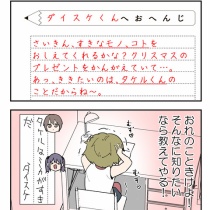 ダイスケくんへおへんじ
さいきん、すきなモノ、コトを
おしえてくれるかな？クリスマスの
プレゼントをかんがえていて…。
あっ、ききたいのは、タケルくんの
ことだからね〜。
おれのこときけよ！
そんなに知りたい
なら教えてやる！
ダイスケ